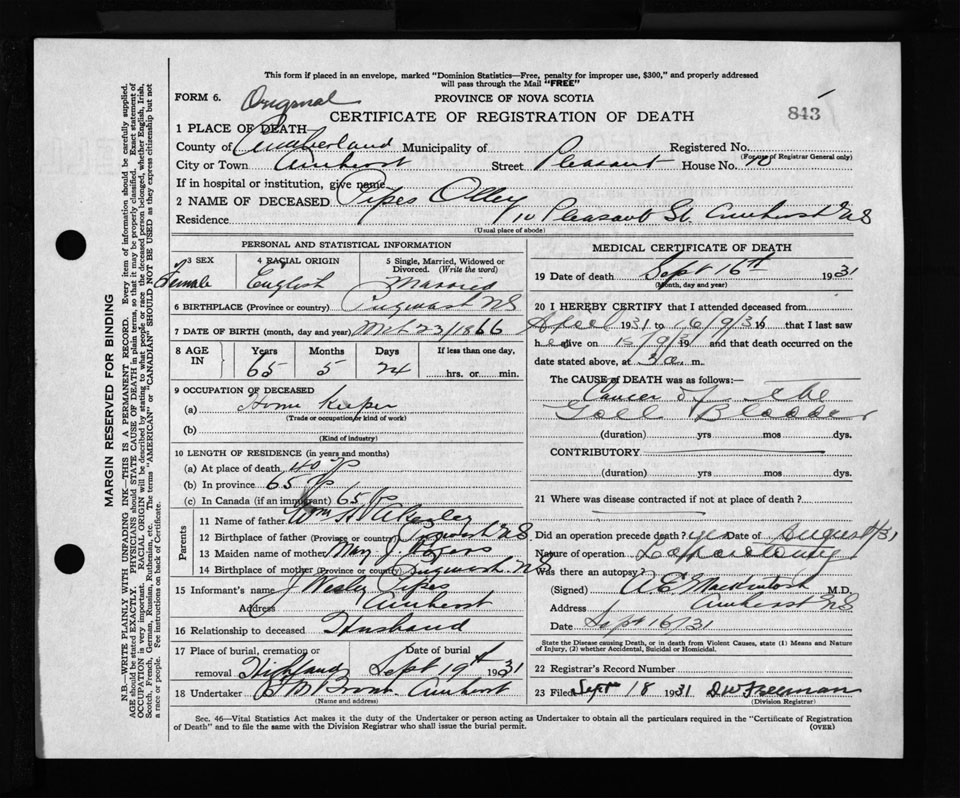 This form if placed in an envelope, marked "Dominion Statistics—Free, penalty for improper use, $300," and properly addressed
will pass through the Mail "FREE"
FORM 6. Original
PROVINCE OF NOVA SCOTIA
CERTIFICATE OF REGISTRATION OF DEATH
843
1 PLACE OF DEATH
County of Cumberland Municipality of Registered No.
(For use of Registrar General only)
City or Town Amherst Street Pleasant House No. 10
If in hospital or institution, give name
2 NAME OF DECEASED Pipes Olley
Residence 10 Pleasant St. Amherst NS
(Usual place of abode)
PERSONAL AND STATISTICAL INFORMATION
3 SEX 4 RACIAL ORIGIN 5 Single, Married, Widowed or
Divorced. (Write the word)
Female English Married
6 BIRTHPLACE (Province or country) Pugwash NS
7 DATE OF BIRTH (month, day and year) 23/1866
8 AGE IN Years Months Days If less than one day,
65 5 24 hrs. or min.
9 OCCUPATION OF DECEASED
(a) Home Keeper
(Trade or occupation or kind of work)
(b)
(Kind of industry)
10 LENGTH OF RESIDENCE (in years and months)
(a) At place of death 40
(b) In province 65
(c) In Canada (if an immigrant) 65
Parents
11 Name of father Wm H
12 Birthplace of father (Province or country) Pugwash NS
13 Maiden name of mother Mary J. Rogers
14 Birthplace of mother (Province or country) Pugwash NS
15 Informant's name J Wesley Pipes
Address Amherst
16 Relationship to deceased Husband
17 Place of burial, cremation or Date of burial
removal Highland Sept 19th 1931
18 Undertaker Amherst
(Name and address)
MEDICAL CERTIFICATE OF DEATH
19 Date of death Sept 16th 1931
(Month, day and year)
20 I HEREBY CERTIFY that I attended deceased from
April 1931 to 16/9/31 19 that I last saw
her alive on 19 and that death occurred on the
date stated above, at 3 a. m.
The CAUSE of DEATH was as follows:
Cancer of the
Gall Bladder
(duration) yrs mos dys.
CONTRIBUTORY
(duration) yrs mos dys.
21 Where was disease contracted if not at place of death?
Did an operation precede death? yes Date of August/31
Nature of operation Laparotomy
Was there an autopsy?
(Signed) A E Mackintosh M.D.
Address Amherst NS
Date Sept 16/31
State the Disease causing Death, or in death from Violent Causes, state (1) Means and Nature
of Injury, (2) whether Accidental, Suicidal or Homicidal.
22 Registrar's Record Number
23 Filed Sept 18 1931 D W Freeman
(Division Registrar)
Sec. 46—Vital Statistics Act makes it the duty of the Undertaker or person acting as Undertaker to obtain all the particulars required in the "Certificate of Registration
of Death" and to file the same with the Division Registrar who shall issue the burial permit. (OVER)
MARGIN RESERVED FOR BINDING
N.B.—WRITE PLAINLY WITH UNFADING INK—THIS IS A PERMANENT RECORD. Every item of information should be carefully supplied.
AGE should be stated EXACTLY. PHYSICIANS should STATE CAUSE OF DEATH in plain terms, so that it may be properly classified. Exact statement of
OCCUPATION is very important. RACIAL ORIGIN will be described by stating to what people or race the deceased person belonged, whether English, Irish,
Scotch, French, German, Russian, Ruthenian, etc. The terms "AMERICAN" or "CANADIAN" SHOULD NOT BE USED as they express citizenship but not
a race or people. See instructions on back of Certificate.